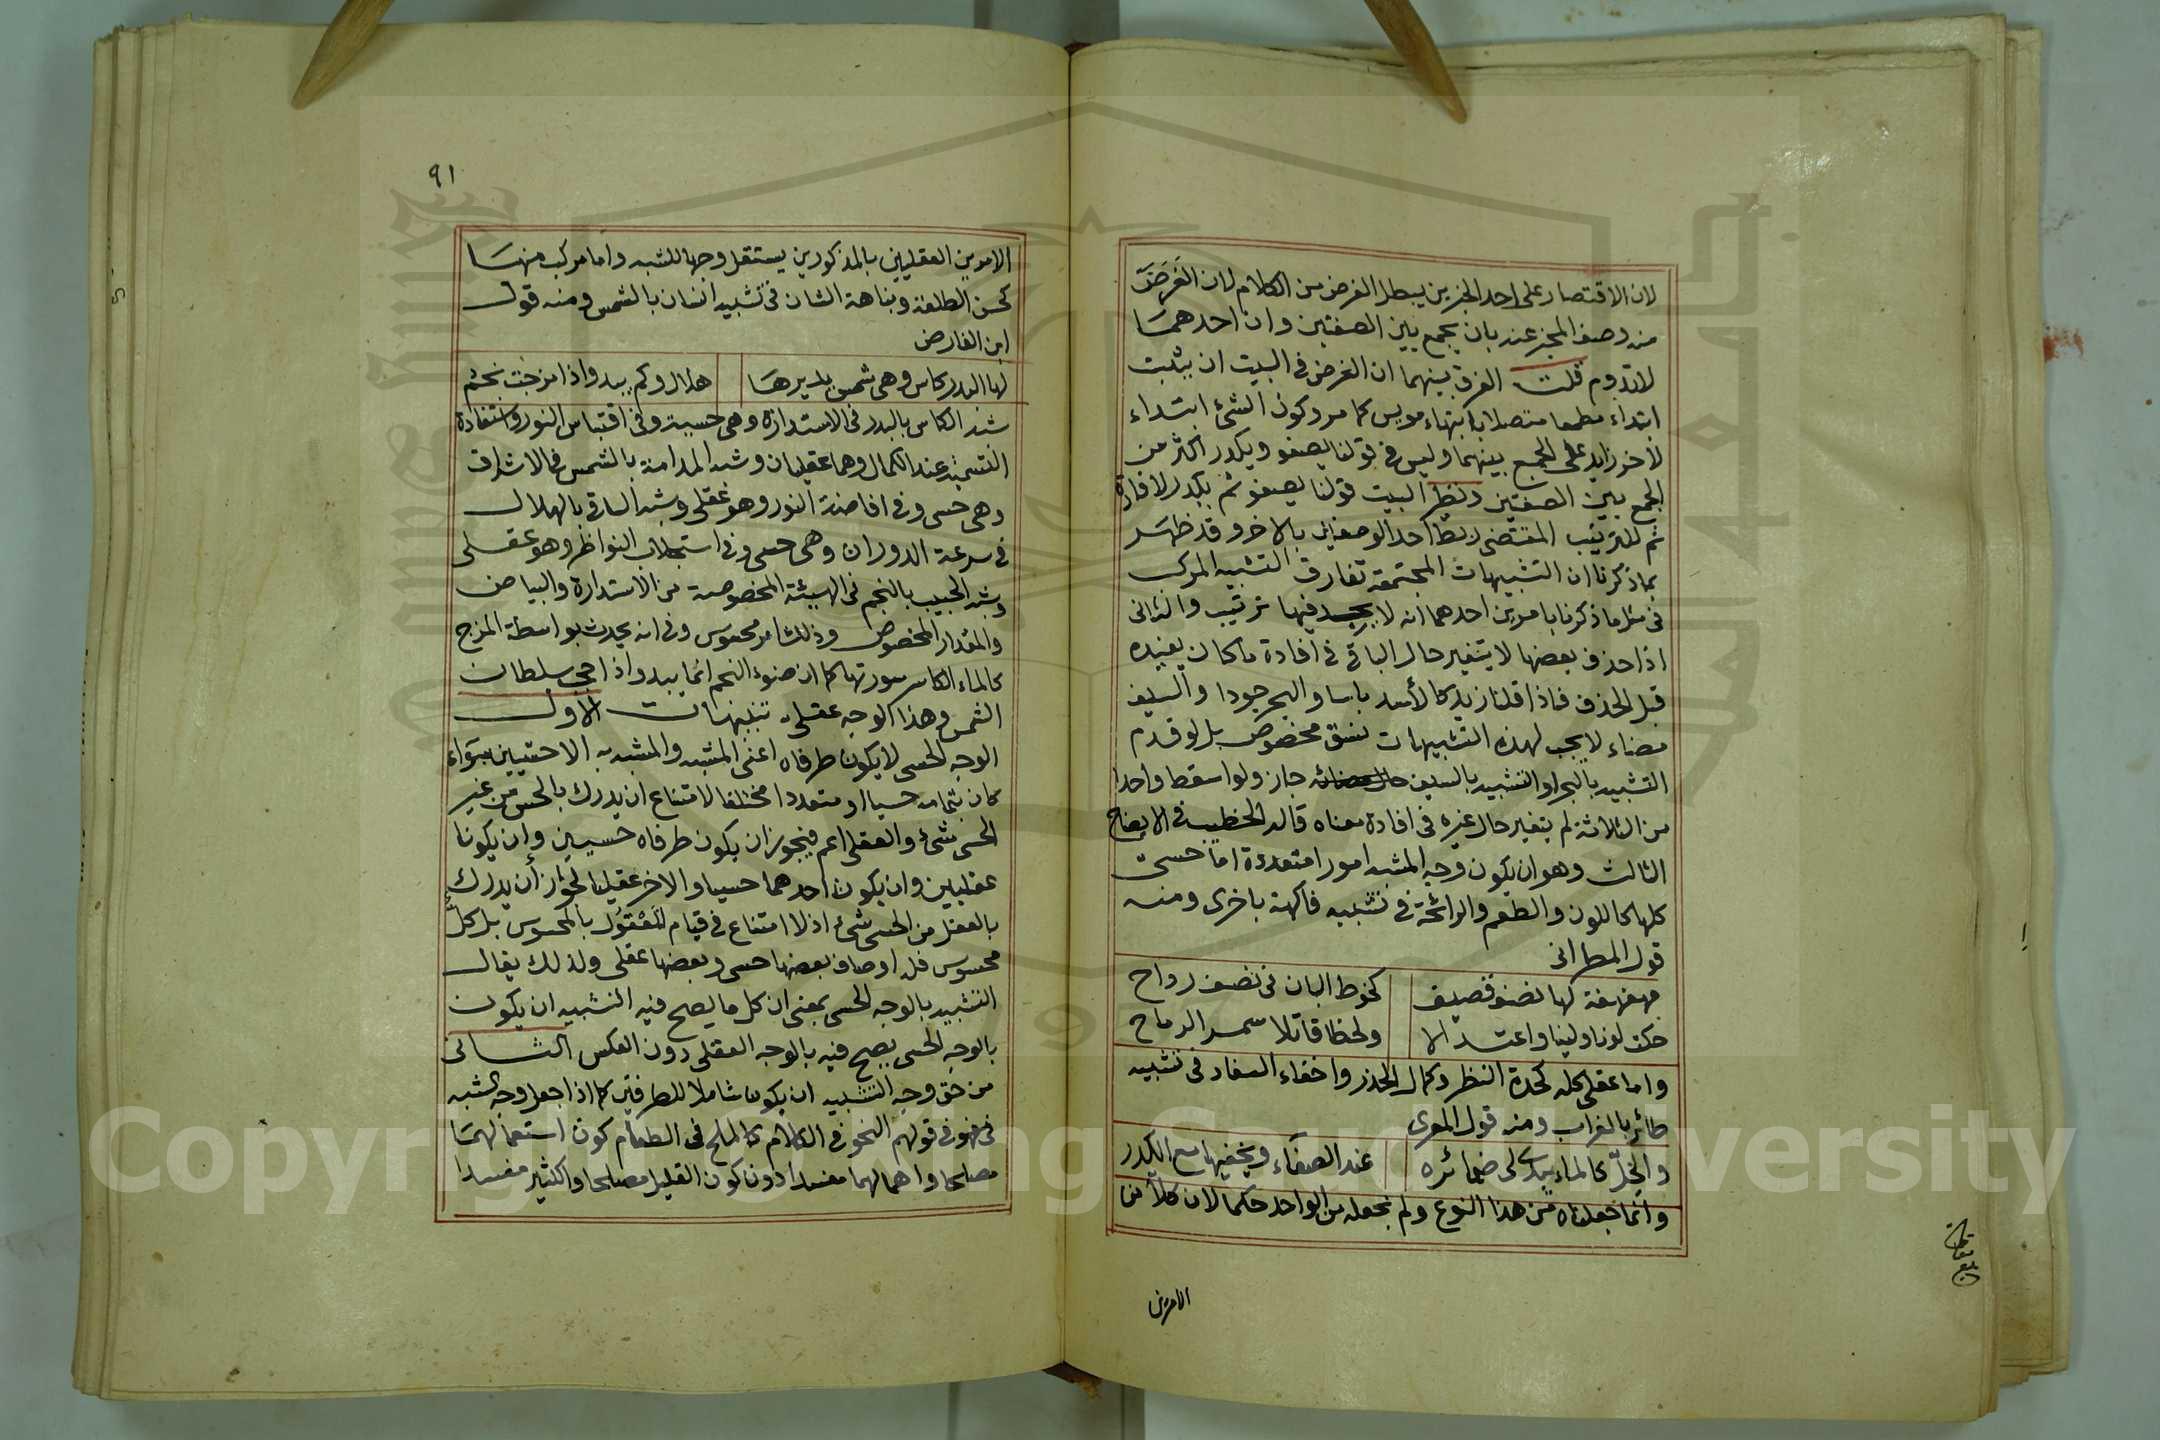 لان الاقتصار على احد الجزين يبطل الغرض من الكلام لان الغَرَضَ
منه وصف المخبر عنه بان يجمع بين الصفتين وان احدهمَا
لا تدوم قلت الفرق بينهما ان الغرض في البيت ان يثبت
ابتداء مطمعا متصلا بانتهاء مويس كما مر وكون الشئ ابتداء
لآخر زايد على الجمع بينهما وليس في قولنا يصفو ويكدر اكثر من
الجمع بين الصفتين ونظير البيت قولنا يصفو ثم يكدر لافادة
ثم للترتيب المقتضي ربط احد الوصفين بالاخر وقد ظهَر
بما ذكرنا ان التشبيهات المجتمعة تفارق التشبيه المركب
في مثل ما ذكرنا بامرين احدهما انه لا يجب فيها ترتيب والثاني
اذا حذف بعضها لا يتغير حال الباقي في افادة ما كان يفيده
قبل الحذف فاذا قلنا زيد كالأسد باسا والبحر جودا والسيف
مضاء لا يجب لهذه التشبيهات نسق مخصوص بل لو قدم
التشبيه بالبحر او التشبيه بالسيف جاز ولو اسقط واحدا
من الثلاثة لم يتغير حال غيره في افادة معناه قاله الخطيب في الايضاح
الثالث وهو ان يكون وجه المشبه امورا متعددة اما حسى
كلها كاللون والطعم والرائحة في تشبيه فاكهة باخرى ومنه
قول المطرانى
مهفهفة لها نصف قصيف كخوط البان في نصف رداح
حكت لونا ولينا واعتدالا ولحظا قاتلا سمر الرماح
واما عقلى كله كحدة النظر وكمال الحذر واخفاء السفاد في تشبيه
طائر بالغراب ومنه قول المعرى
والخِلّ كالماء يبدى لى ضمائره عند الصفاء ويخفيها مع الكدر
وانما جعلناه من هذا النوع ولم نجعله من الواحد حكما لان كلا من
الامرين
٩١
الامرين العقليين بالمذكورين يستقل وجها للشبه واما مركب منهمَا
كحسن الطلعة ونباهة الشان في تشبيه انسان بالشمس ومنه قول
ابن الفارض
لها البدر كاس وهي شمس يديرهَا هلال وكم يبدو اذا مزجت نجم
شبه الكاس بالبدر في الاستدارة وهي حسية وفي اقتباس النور واستفادة
التسمية عند الكمال وهما عقليان وشبه المدامة بالشمس في الاشراق
وهي حسى وفي افاضة النور وهو عقلى وشبه الساقى بالهلال
في سرعة الدوران وهي حسى وفي استجلاب النواظر وهو عقلى
وشبه الحبب بالنجم في الهيئة المخصوصة من الاستدارة والبياض
والمقدار المخصوص وذلك امر محسوس وفي انه يحدث بواسطة المزج
كالماء الكاسر سورتها كما ان ضوء النجم انما يبدو اذا امحى سلطان
الشمس وهذا الوجه عقلى تنبيهات الاول
الوجه الحسى لا يكون طرفاه اعنى المشبه والمشبه به الا حسيين سواء
كان بتمامه حسيا او متعددا مختلفا لامتناع ان يدرك بالحس من غير
الحسى شئ والعقلى اعم فيجوز ان يكون طرفاه حسيين وان يكونا
عقليين وان يكون احدهما حسيا والاخر عقليا لجواز أن يدرك
بالعقل من الحسى شئ اذ لا امتناع في قيام المعْقوُل بالمحسوس بل كلُّ
محسوس فله اوصاف بعضها حسى وبعضها عقلى ولذلك يقال
التشبيه بالوجه الحسى بمعنى ان كل ما يصح فيه التشبيه ان يكون
بالوجه الحسى يصح فيه بالوجه العقلى دون العكس الثانى
من حق وجه التشبيه ان يكون شاملا للطرفين كما اذا جعل وجه الشبه
في قولهم النحو في الكلام كالملح في الطعام كون استعمالهمَا
مصلحا واهمالهما مفسدا دون كون القليل مصلحا والكثير مفسدا
Copyright © King Saud University